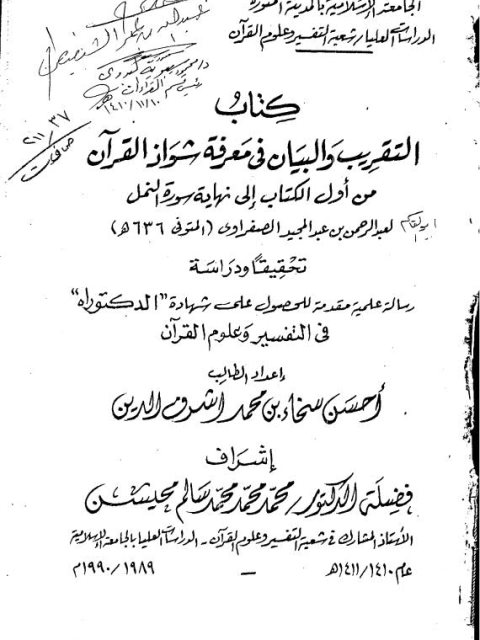 الجامعة الإسلامية بالمدينة المنورة
الدراسات العليا / شعبة التفسير وعلوم القرآن
١٤١٠/١١/١٠هـ
كتاب
التقريب والبيان في معرفة شواذ القرآن
من أول الكتاب إلى نهاية سورة النمل
لعبدالرحمن بن عبدالمجيد الصفراوي (المتوفى ٦٣٦هـ)
تحقيقًا ودراسة
رسالة علمية مقدمة للحصول على شهادة "الدكتوراه"
في التفسير وعلوم القرآن
إعداد الطالب
أحسن سخاء بن محمد أشرف الدين
إشراف
فضيلة الدكتور / محمد محمد محمد سالم محيسن
الأستاذ المشارك في شعبة التفسير وعلوم القرآن - الدراسات العليا بالجامعة الإسلامية
عام ١٤١٠ / ١٤١١هـ — ١٩٨٩ / ١٩٩٠م